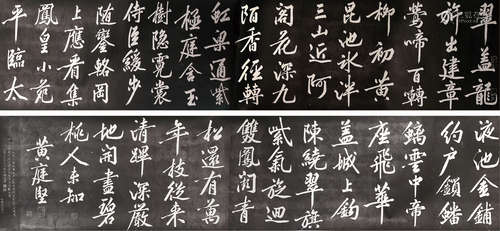 翠盖龍
旂出建章
鶯啼百轉
柳初黄
昆池氷泮
三山近阿
閣花深九
陌香徑轉
虹梁通紫
極庭含玉
樹隐霓裳
侍臣緩步
随鑾輅岡
上應看集
鳳皇小苑
平臨太
液池金鋪
約戸鎖蟠
螭雲中帝
座飛華
盖城上鈎
陳繞翠旗
紫氣旋迴
雙鳳闕青
松還有萬
年枝從来
清蹕深嚴
地開盡碧
桃人未知
黄庭堅